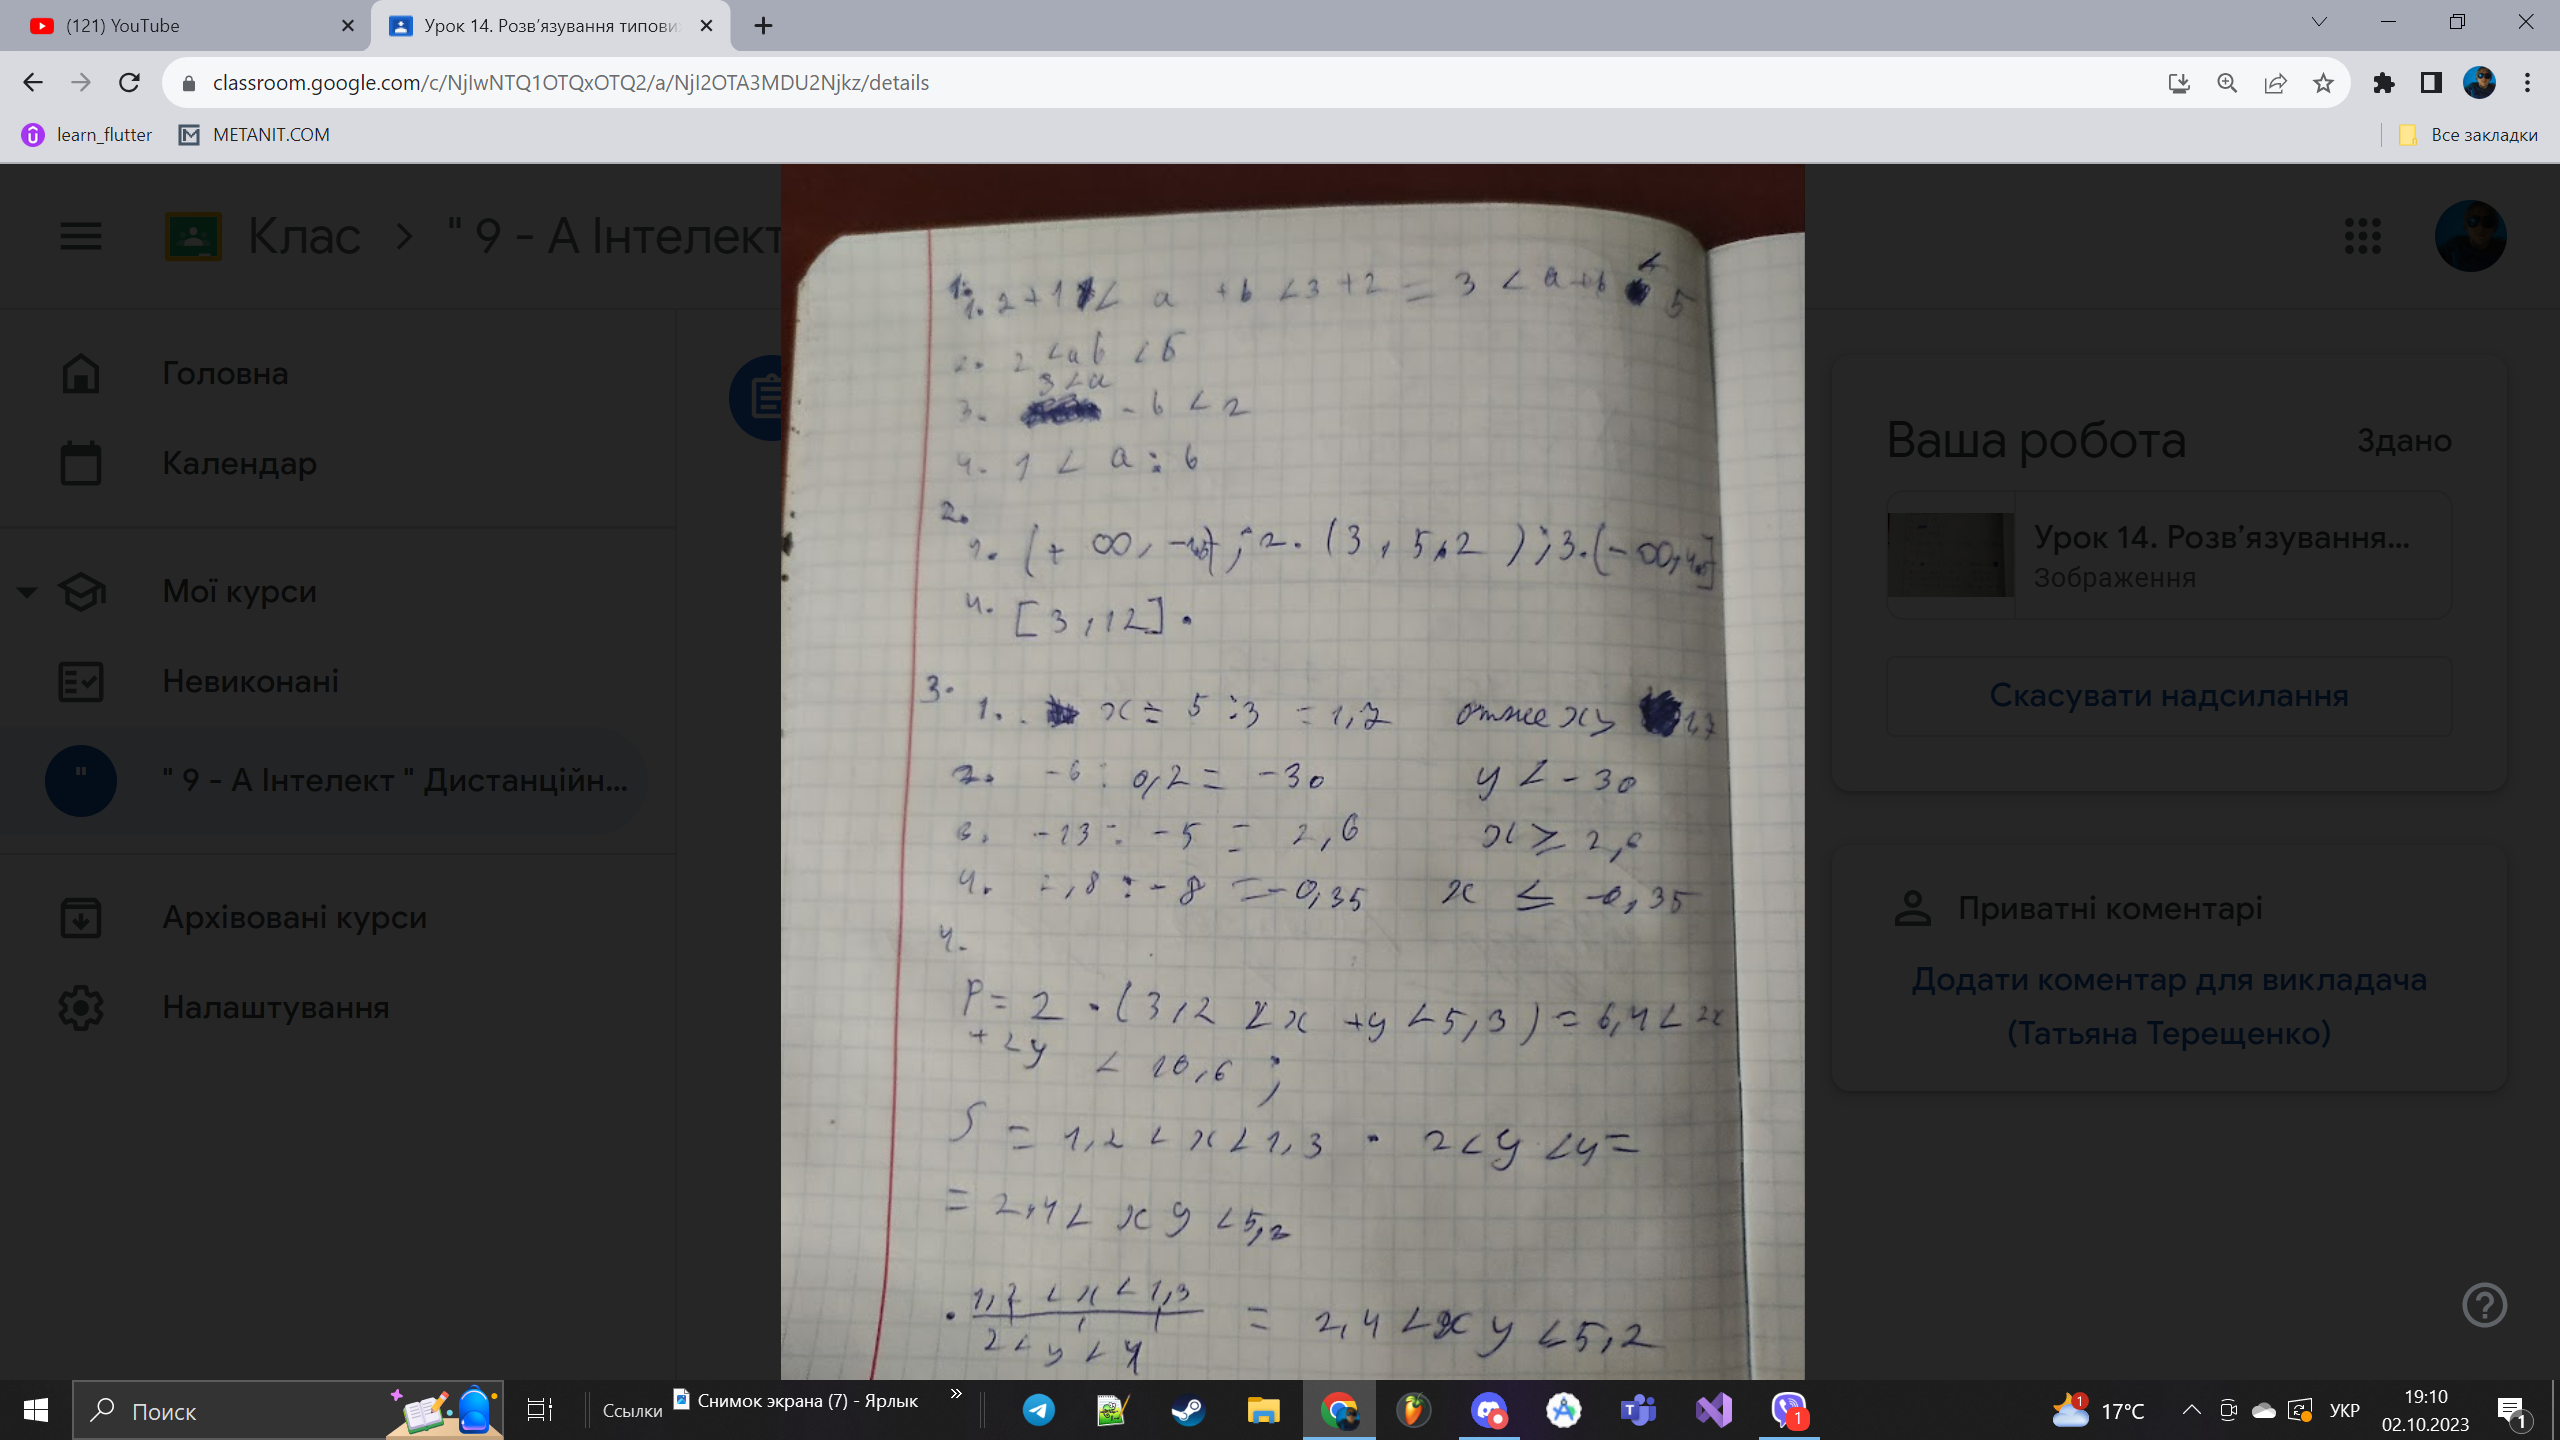 (121) YouTube
Урок 14. Розв'язування типови
classroom.google.com/c/NjIwNTQ1OTQxOTQ2/a/NjI2OTA3MDU2Njkz/details
learn_flutter
METANIT.COM
Все закладки
Клас > " 9 - А Інтелект
Головна
Календар
Мої курси
Невиконані
"
" 9 - А Інтелект " Дистанційн...
Архівовані курси
Налаштування
1. 1. 2+1 < a + b < 3+2 = 3 < a+b < 5
2. 2 < ab < 6
3 < a
3. - b < 2
4. 1 < a : b
2.
1. (+ ∞, ; 2. (3, 5,2); 3. (-∞,
4. [3,12].
3. 1. x = 5 : 3 = 1,7 отже x > 1,7
2. -6 : 0,2 = -30 y < -30
3. -13 : -5 = 2,6 x ≥ 2,6
4. : -8 = -0,35 x ≤ -0,35
4.
P = 2 · (3,2 < x + y < 5,3) = 6,4 < 2x
+ 2y < 10,6 ;
S = 1,2 < x < 1,3 · 2 < y < 4 =
= 2,4 < xy < 5,2
· 1,2 < x < 1,3
2 < y < 4 = 2,4 < xy < 5,2
Ваша робота
Здано
Урок 14. Розв'язування...
Зображення
Скасувати надсилання
Приватні коментарі
Додати коментар для викладача
(Татьяна Терещенко)
Поиск
Ссылки
Снимок экрана (7) - Ярлык
»
1
1
17°C
УКР
19:10
02.10.2023
1